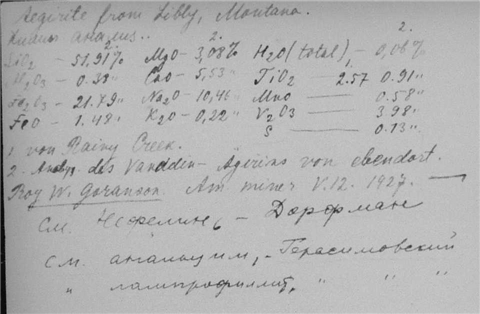 Aegirite from Libby, Montana.
анализ..
2. 2. 2.
SiO2 – 51,91% MgO – 3,08% H2O (total), – 0,06%
Al2O3 – 0.38" CaO – 5,53" TiO2 — 2.57 0.91"
Fe2O3 – 21.79" Na2O – 10,46" MnO — 0.58"
FeO – 1.48" K2O – 0,22" V2O3 — 3.98"
S — 0.13"
1. von Rainy Creek.
2. des Vanadin – Ägirins von ebendort.
Roy W. Goranson. Am. miner V.12. 1927. —
См. Нефелинъ – Дорфман
см. анальцим, – Герасимовский
" лампрофиллит, " " "